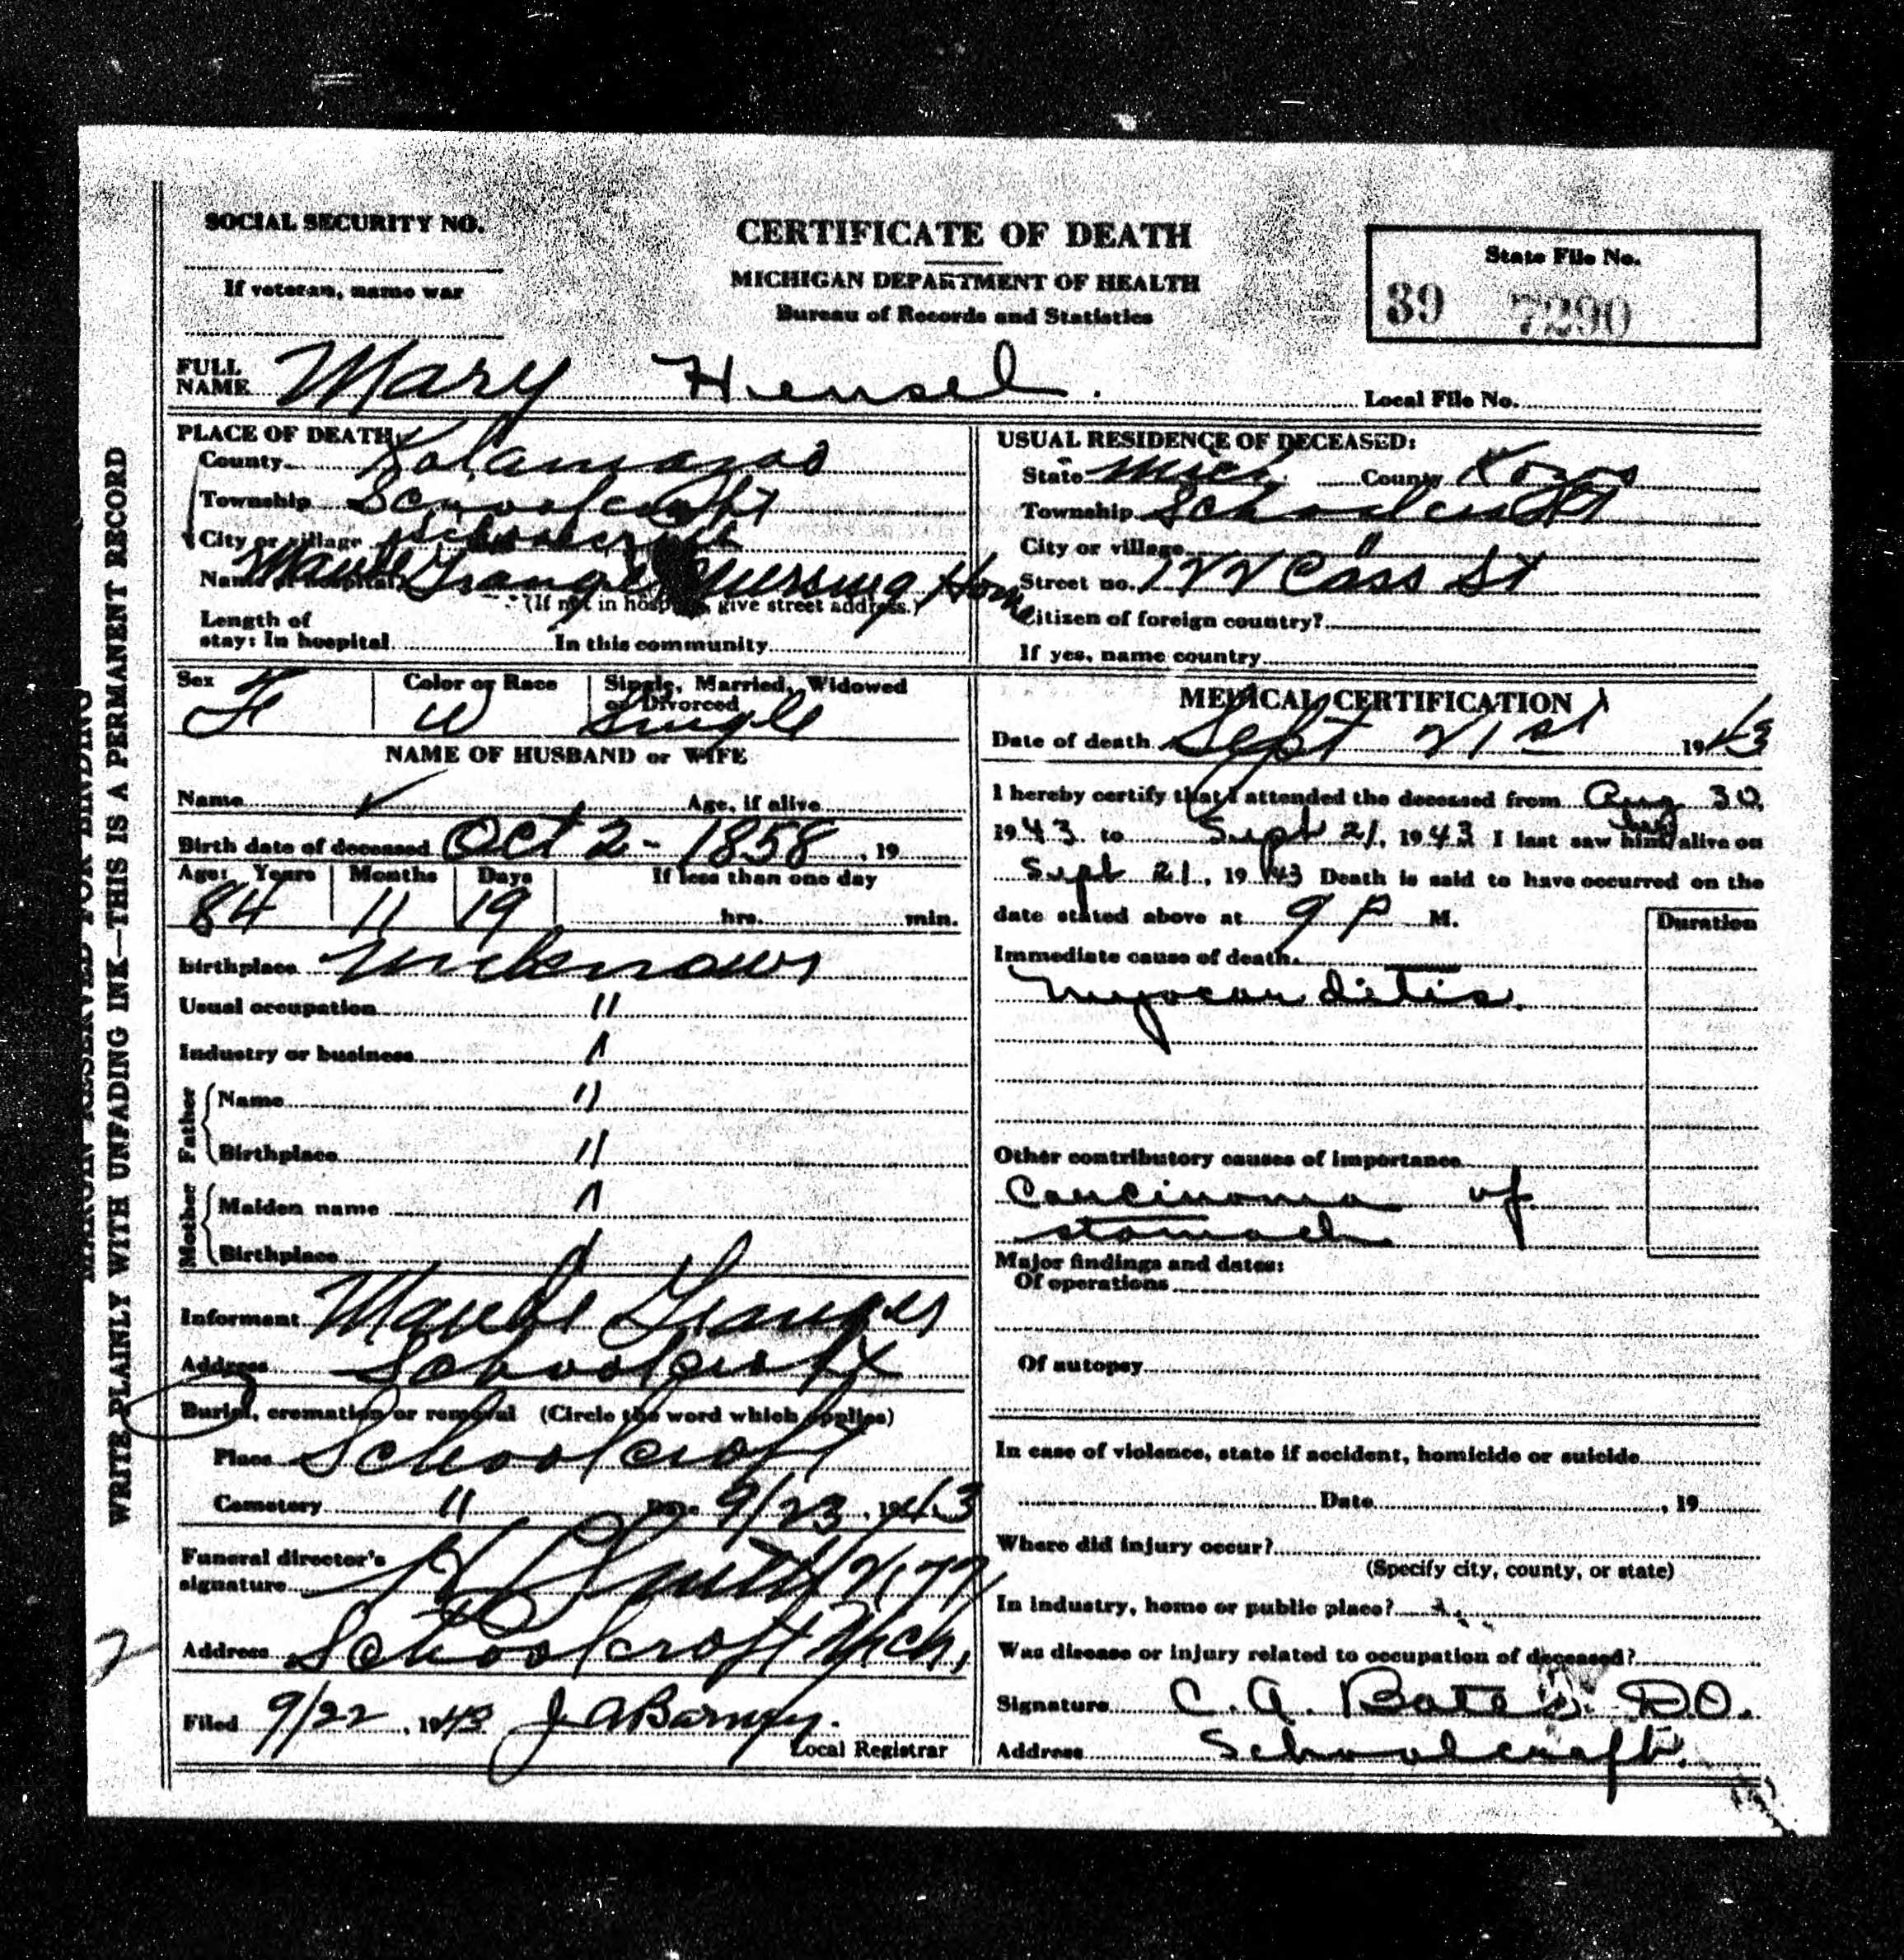 SOCIAL SECURITY NO.
If veteran, name war
CERTIFICATE OF DEATH
MICHIGAN DEPARTMENT OF HEALTH
Bureau of Records and Statistics
State File No.
39 7290
FULL NAME Mary Hensel.
Local File No.
PLACE OF DEATH
County Kalamazoo
Township Schoolcraft
City or village Schoolcraft
Name of hospital Maude Granger Nursing Home
(If not in hospital, give street address.)
Length of
stay: In hospital In this community
USUAL RESIDENCE OF DECEASED:
State Mich. County Kozoo
Township Schoolcraft
City or village "
Street no. 122 Cass St
Citizen of foreign country?
If yes, name country
Sex Fe
Color or Race W
Single, Married, Widowed or Divorced Single
NAME OF HUSBAND or WIFE
Name ✓ Age, if alive
Birth date of deceased Oct 2 - 1858, 19
Age: Years Months Days If less than one day
84 11 19 hrs. min.
Birthplace unknown
Usual occupation "
Industry or business "
Father
Name "
Birthplace "
Mother
Maiden name "
Birthplace "
Informant Maude Granger
Address Schoolcraft
Burial, cremation or removal (Circle the word which applies)
Place Schoolcraft
Cemetery " Date 9/23, 1943
Funeral director's
signature Smith 2177
Address Schoolcraft Mich,
Filed 9/22, 1943 J A Barney.
Local Registrar
MEDICAL CERTIFICATION
Date of death Sept 21st 1943
I hereby certify that I attended the deceased from Aug 30,
1943 to Sept 21, 1943 I last saw him her alive on
Sept 21, 1943 Death is said to have occurred on the
date stated above at 9 P M.
Duration
Immediate cause of death
Myocarditis.
Other contributory causes of importance
Carcinoma of
stomach
Major findings and dates:
Of operations
Of autopsy
In case of violence, state if accident, homicide or suicide
Date , 19
Where did injury occur?
(Specify city, county, or state)
In industry, home or public place?
Was disease or injury related to occupation of deceased?
Signature C. A. Bates D.O.
Address Schoolcraft.
MARGIN RESERVED FOR BINDING
WRITE PLAINLY WITH UNFADING INK—THIS IS A PERMANENT RECORD
2